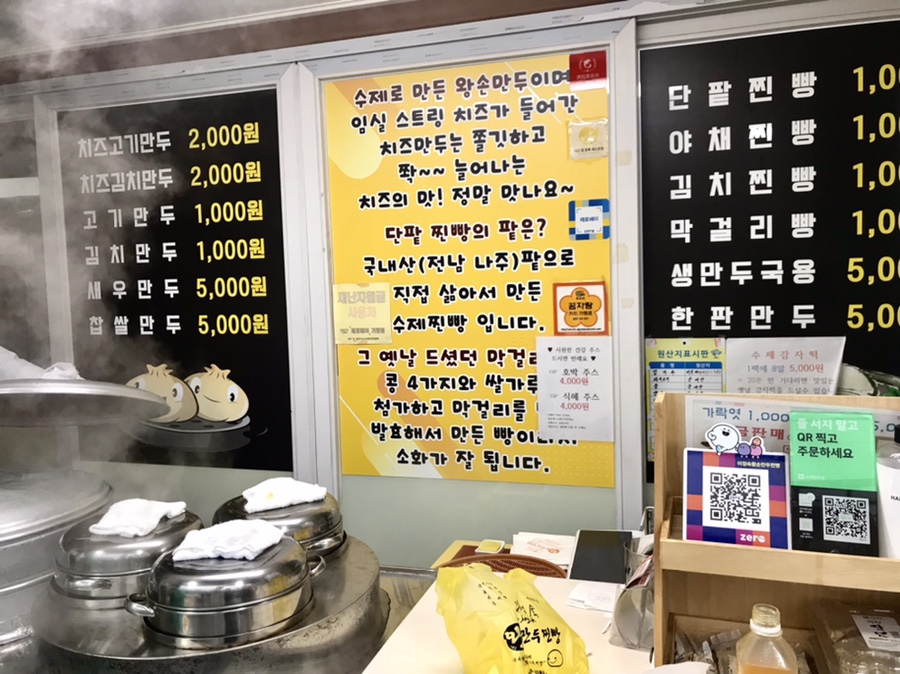 치즈고기만두 2,000원
치즈김치만두 2,000원
고기만두 1,000원
김치만두 1,000원
새우만두 5,000원
찹쌀만두 5,000원
수제로 만든 왕손만두이며
임실 스트링 치즈가 들어간
치즈만두는 쫄깃하고
쫙~~ 늘어나는
치즈의 맛! 정말 맛나요~
단팥 찐빵의 팥은?
국내산(전남 나주)팥으로
직접 삶아서 만든
수제찐빵 입니다.
그 옛날 드셨던 막걸리
콩 4가지와 쌀가루
첨가하고 막걸리를
발효해서 만든 빵이
소화가 잘 됩니다.
재난지원금
사용처
제로페이
꿈자람
♥ 시원한 건강 주스
드시면 반해요 ♥
호박 주스
4,000원
식혜 주스
4,000원
단팥찐빵 1,0
야채찐빵 1,0
김치찐빵 1,0
막걸리빵 1,0
생만두국용 5,0
한판만두 5,0
원산지표시판
수제감자떡
1팩에 포알 5,000원
가락엿 1,000
금판매
줄 서지 말고
QR 찍고
주문하세요
zero
만두찐빵